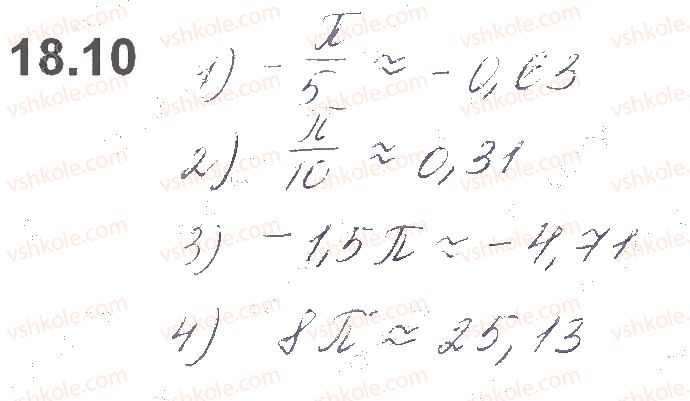 18.10
1) - π/5 ≈ - 0,63
2) π/10 ≈ 0,31
3) - 1,5π ≈ - 4,71
4) 8π ≈ 25,13
vshkole.com